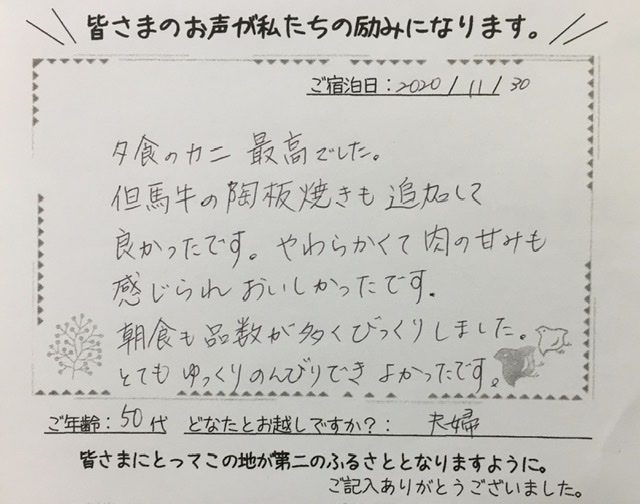 皆さまのお声が私たちの励みになります。
ご宿泊日：2020/11/30
夕食のカニ 最高でした。
但馬牛の陶板焼きも 追加して
良かったです。やわらかくて肉の甘みも
感じられ おいしかったです.
朝食も品数が多くびっくりしました。
とても ゆっくりのんびりでき よかったです。
ご年齢：50代 どなたとお越しですか？： 夫婦
皆さまにとってこの地が第二のふるさととなりますように。
ご記入ありがとうございました。